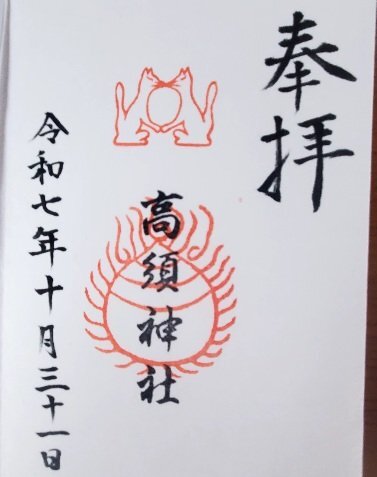 奉拝
高須神社
令和七年十月三十一日